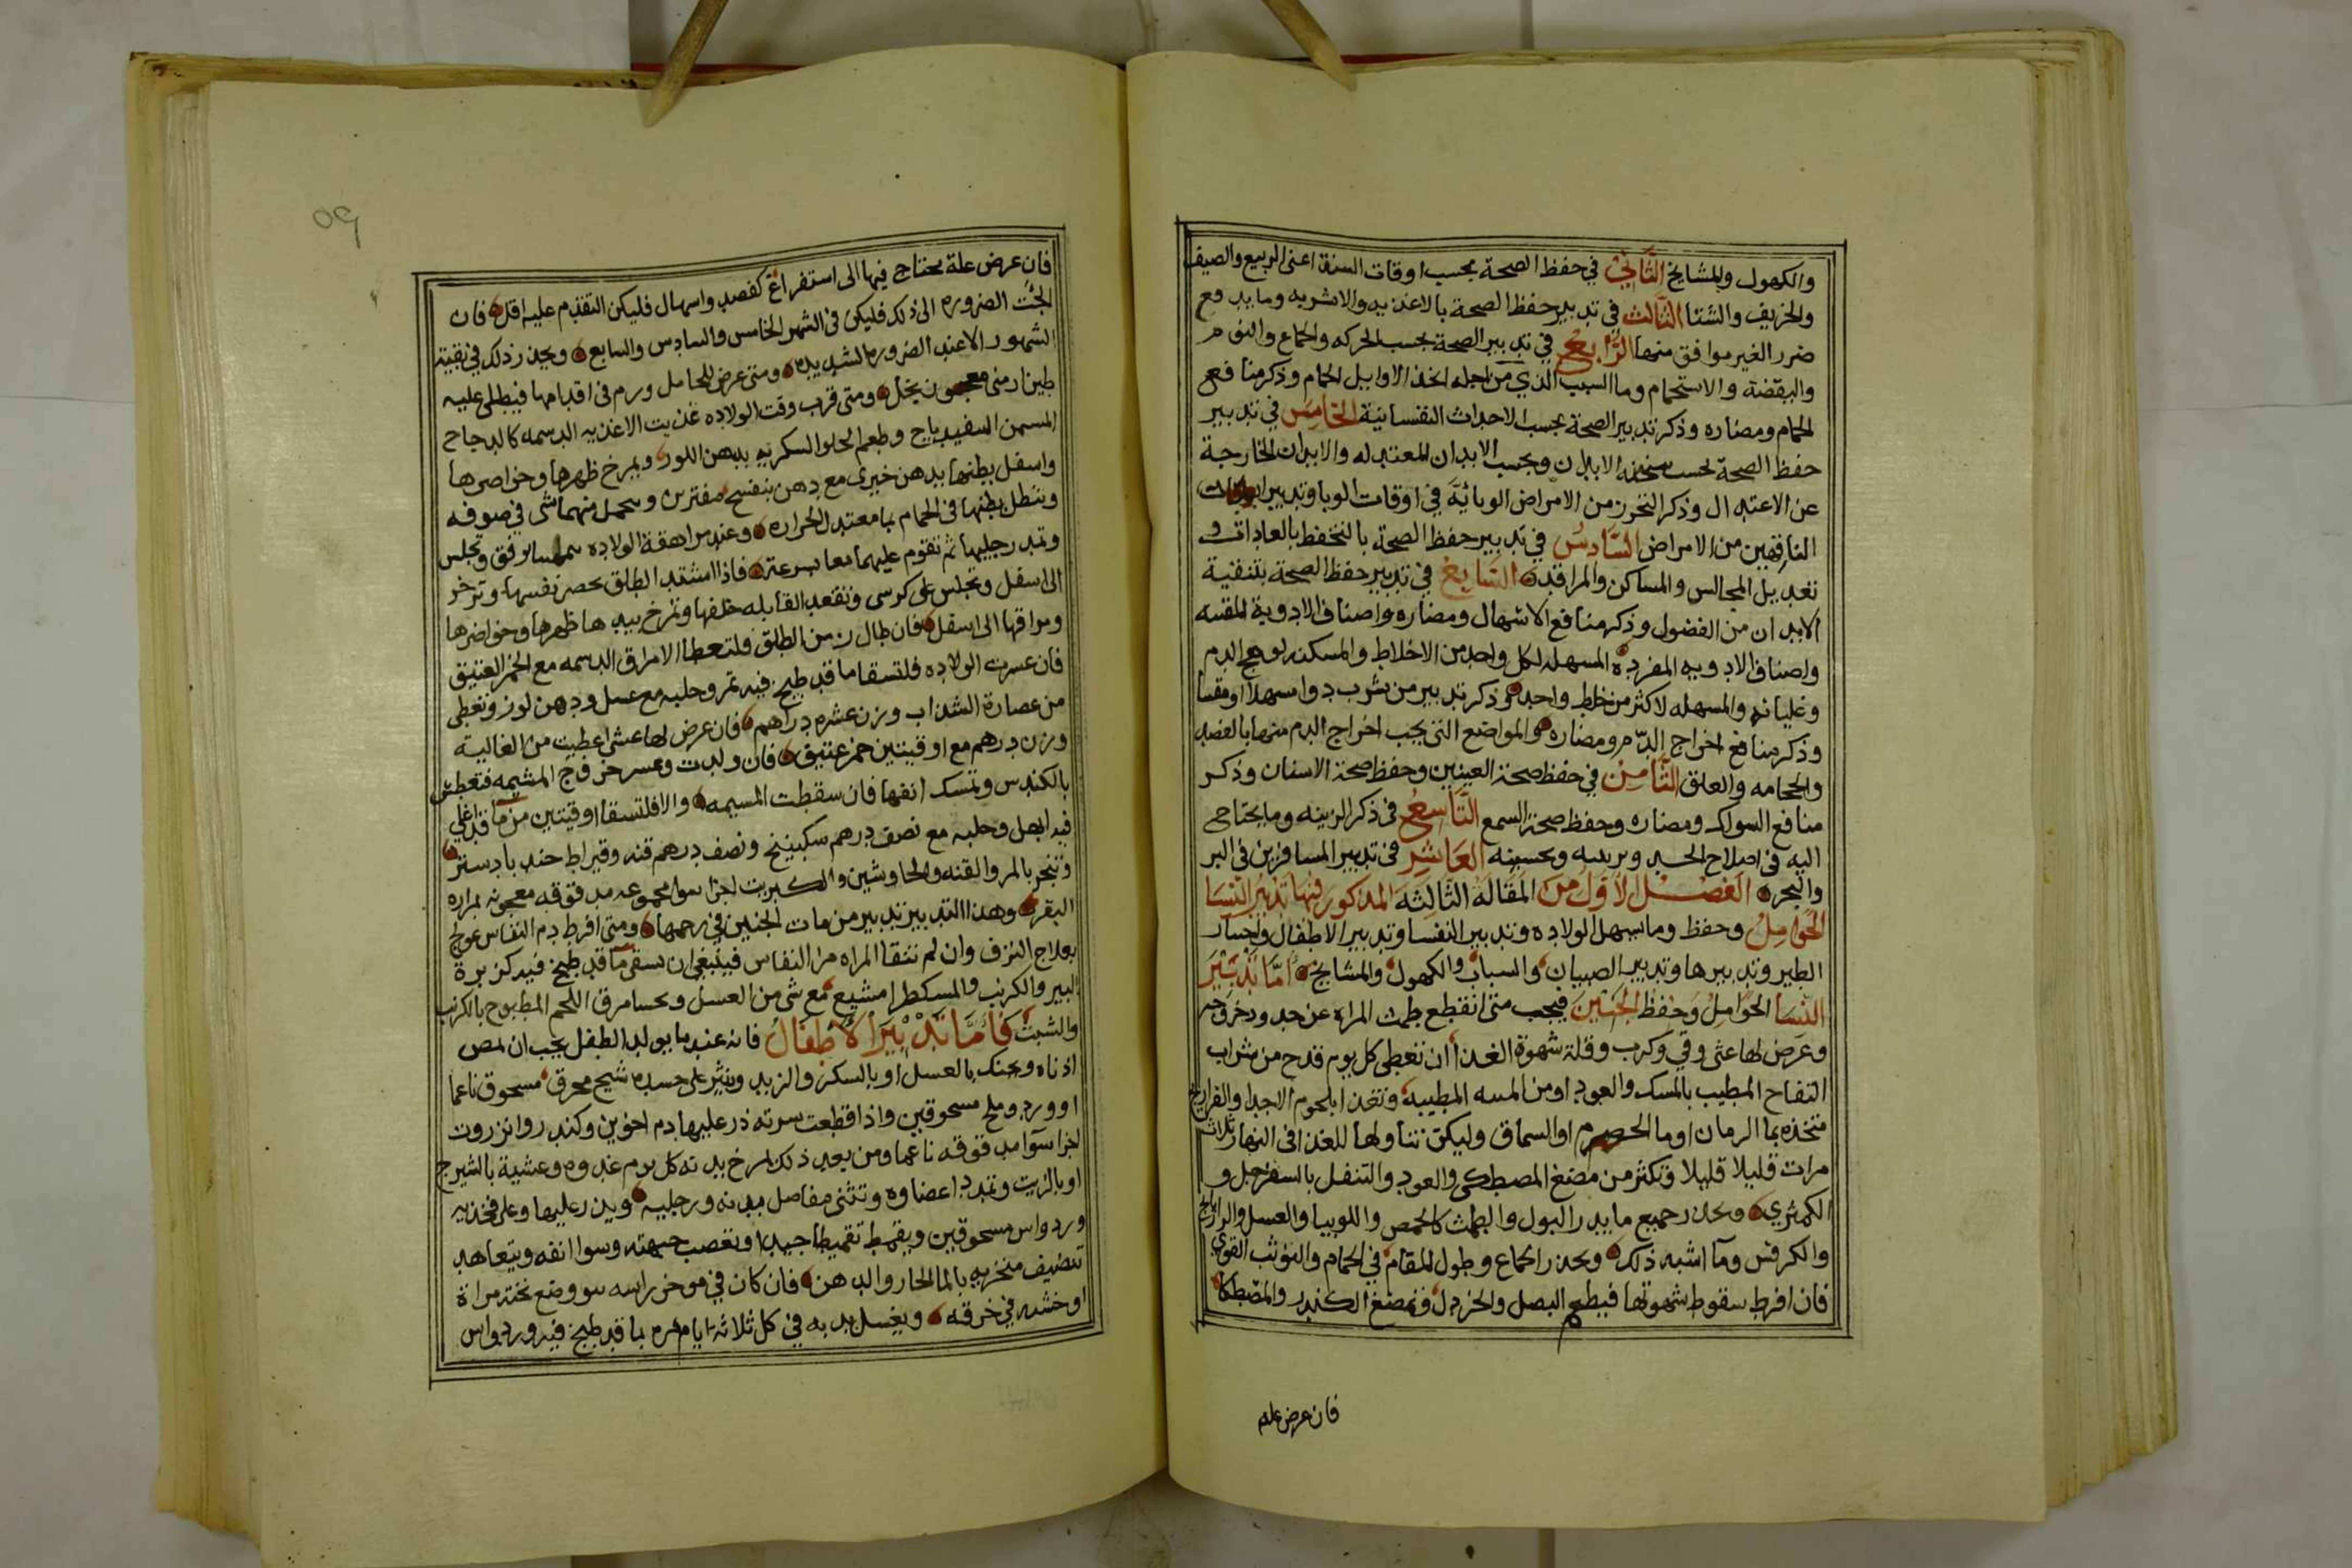 والكهول والمشايخ الثَّاني في حفظ الصحة بحسب اوقات السنة اعنى الربيع والصيف
والخريف والشتا الثَّالث في تدبير حفظ الصحة بالاغذيه والاشربه وما يدفع
ضرر الغير موافق منها الرَّابع في تدبير الصحة بحسب الحركه والجماع والنوم
واليقضة والاستحمام وما السبب الذي من اجله اتخذ الاوايل الحمام وذكر منافع
الحمام ومضاره وذكر تدبير الصحة بحسب الاحداث النفسانية الخامِسَ في تدبير
حفظ الصحة بحسب سخنة الابدان وبحسب الابدان المعتدله والابدان الخارجة
عن الاعتدال وذكر التحرز من الامراض الوبائيَّة في اوقات الوبا وتدبير ابدان
الناقهين من الامراض السَّادسُ في تدبير حفظ الصحة بالتحفظ بالعادات و
تعديل المجالس والمساكن والمراقد السَّابعْ في تدبير حفظ الصحة بتنقية
الابدان من الفضول وذكر منافع الاسهال ومضاره واصناف الادوية المقيه
واصناف الادويه المفرده المسهله لكل واحد من الاخلاط والمسكنه لوهج الدم
وغليانه والمسهله لاكثر من خلط واحد وذكر تدبير من شرب دوا مسهلا او مقيا
وذكر منافع اخراج الدّم ومضاره والمواضع التى يجب اخراج الدم منها بالفصد
والحجامه والعلق الثَّامِنْ في حفظ صحة العينين وحفظ صحة الاسنان وذكر
منافع السواك ومضاره وحفظ صحة السمع التَّاسِعُ فى ذكر الزينه وما يحتاج
اليه فى اصلاح الجسد وتزيينه وتحسينه العَاشِر فى تدبير المسافرين فى البر
والبحر الفصْل الاَوَّلُ من المَقَالَة الثَّالِثَة المذكور فيهَا تدبيُر النسَا
الحَوامِلْ وحفظ وما يسهل الولاده وتدبير النفسا وتدبير الاطفال واختيار
الظير وتدبيرها وتدبير الصبيان والشباب والكهول والمشايخ امَّا تَدْبيْرَ
النسَا الحَوَامِلْ وَحفظْ الجَنِيْن فيجب متى انقطع طمث المراه عن حد ودخروجه
وعَرَض لها غثى وقي وكرب وقلة شهوة الغذا ان تعطى كل يوم قدح من شراب
التفاح المطيب بالمسك والعود او من الميبه المطيبه وتغذا بلحوم الاجدا والفراريج
متخذه بما الرمان او ما الحصرم او السماق وليكن تناولها للغذا فى النهار ثلاث
مرات قليلا قليلا وتكثر من مضغ المصطكى والعود والتنقل بالسفرجل و
الكمثرى وتحذر جميع ما يدر البول والطمث كالحمص واللوبيا والعسل والرازيانج
والكرفس وما اشبه ذلك وتحذر الجماع وطول المقام في الحمام والتوثب القوي
فان افرط سقوط شهوتها فيطعم البصل والخردل وتمضغ الكندر والمصْطكا
فان عرض علة
فان عرض علة يحتاج فيها الى استفراغ كفصد واسهال فليكن التقدم عليه اقل فان
الجئت الضروره الى ذلك فليكن فى الشهر الخامس والسادس والسابع ويحذر ذلك فى بقية
الشهور الا عند الضروره الشديده ومتى عرض للحامل ورم فى اقدامها فيطلى عليه
طين ارمنى معجون بخل ومتى قرب وقت الولاده غذيت الاغذيه الدسمه كالدجاج
المسمن السفيدباج وطعم الحلوا السكريه بدهن اللوز ويمرخ ظهرها وخواصرها
واسفل بطنها بدهن خيرى مع دهن بنفسج مفترين وتتحمل منهما شى في صوفه
وينطل بطنها فى الحمام بما معتدل الحراره وعند مراهقة الولاده وتجلس
وتمد رجليها ثم تقوم عليهما معا بسرعة فاذا اشتد الطلق تحصر نفسها وتزحر
الى اسفل وتجلس على كرسى وتقعد القابله خلفها وتمرخ بيدها ظهرها وخواصرها
ومراقها الى اسفل فان طال زمن الطلق فلتعطا الامراق الدسمه مع الخمر العتيق
فان عسرت الولاده فلتسقا ما قد طبخ فيه تمر وحلبه مع عسل ودهن لوز وتعطى
من عصارة الشذاب وزن عشره دراهم فان عرض لها غشى اعطيت من الغاليه
وزن درهم مع اوقيتين خمر عتيق فان ولدت وعسر خروج المشيمه فتعطس
بالكندس وتمسك انفها فان سقطت المشيمه والا فلتسقا اوقيتين من ما قد اغلى
فيه ابهل وحلبه مع نصف درهم سكبينج ونصف درهم قنه وقيراط جند بادستر
وتبخر بالمر والقنه والجاوشير والكبريت اجزا سوا مجموعه مدقوقه معجونه بمراره
البقر وهذا التدبير تدبير من مات الجنين في رحمها ومتى افرط دم النفاس عولج
بعلاج النزف وان لم تنقا المراه من النفاس فينبغى ان تسقى ما قد طبخ فيه كزبرة
البير والكرنب والمسكطرامشيع مع شى من العسل وتحسا مرق اللحم المطبوح بالكرنب
والشبث فاَمَّا تَدْبيْرَ الاَطفَالْ فانه عندما يولد الطفل يجب ان تمص
اذناه ويحنك بالعسل او بالسكر والزبد وينثر على جسده شيح محرق مسحوق ناعما
او ورد وملح مسحوقين واذا قطعت سرته ذر عليها دم اخوين وكندر وانزروت
اجزا سوا مدقوقه ناعما ومن بعد ذلك يمرخ بدنه كل يوم غدوه وعشية بالشيرج
او بالزيت وتمدد اعضاوه وتثنى مفاصل بدنه ورجليه ويذر عليها وعلى فخذيه
ورد واس مسحوقين ويقمط تقميطا جيدا وتعصب جبهته وسوا انفه ويتعاهد
تنضيف منخريه بالما الحار والدهن فان كان في موخر راسه نتو وضع تحته مراة
او خشبه في خرقه ويغسل بدنه في كل ثلاثة ايام مره بما قد طبخ فيه ورد واس